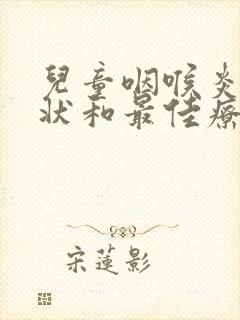 兒童咽喉炎
狀和最佳療
宋蓮影